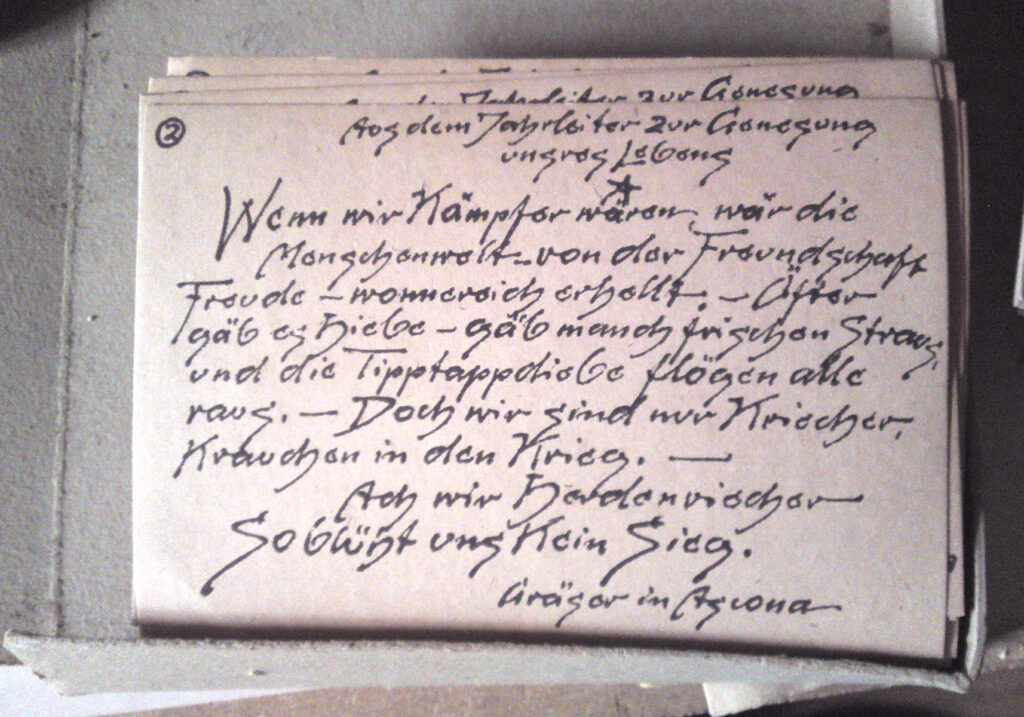 ②
Aus dem Jahrleiter zur Genesung
unsres Lebens
Wenn wir Kämpfer wären, wär die
Menschenwelt von der Freundschaft
Freude – wonnereich erhellt. – Öfter
gäb es Hiebe – gäb manch frischen Straus,
und die Tipptappdiebe flögen alle
raus. – Doch wir sind nur Kriecher,
Krauchen in den Krieg. —
Ach wir Herdenriecher
So blüht uns Kein Sieg.
Gräser in Ascona